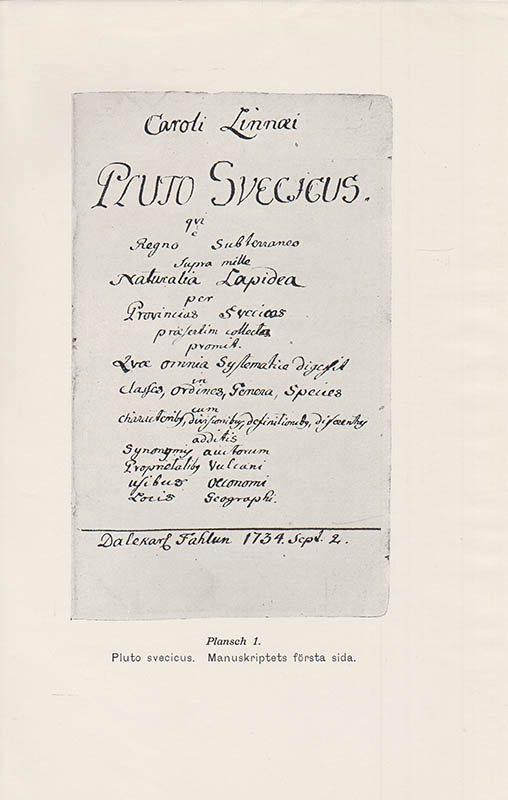 Caroli Linnæi
PLUTO SVECICUS.
qvi
è
Regno Subterraneo
supra mille
Naturalia Lapidea
per
Provincias Svecicas
præsertim collecta
promit.
Qvæ omnia Systematice digessit
in
Classes, Ordines, Genera, Species
cum
characteribg, divisionibg, definitionibg, differentiis
additis
Synonymis auctorum
Proprietatibg Vulcani
usibus Oeconomi
Locis Geographi.
Dalekarl Fahlun 1734. Sept. 2.
Plansch 1.
Pluto svecicus. Manuskriptets första sida.